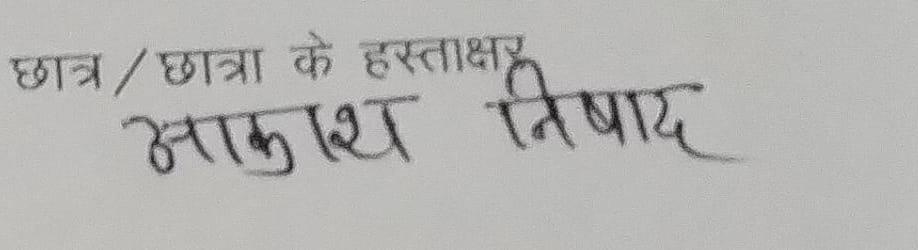 छात्र / छात्रा के हस्ताक्षर
आकाश निषाद